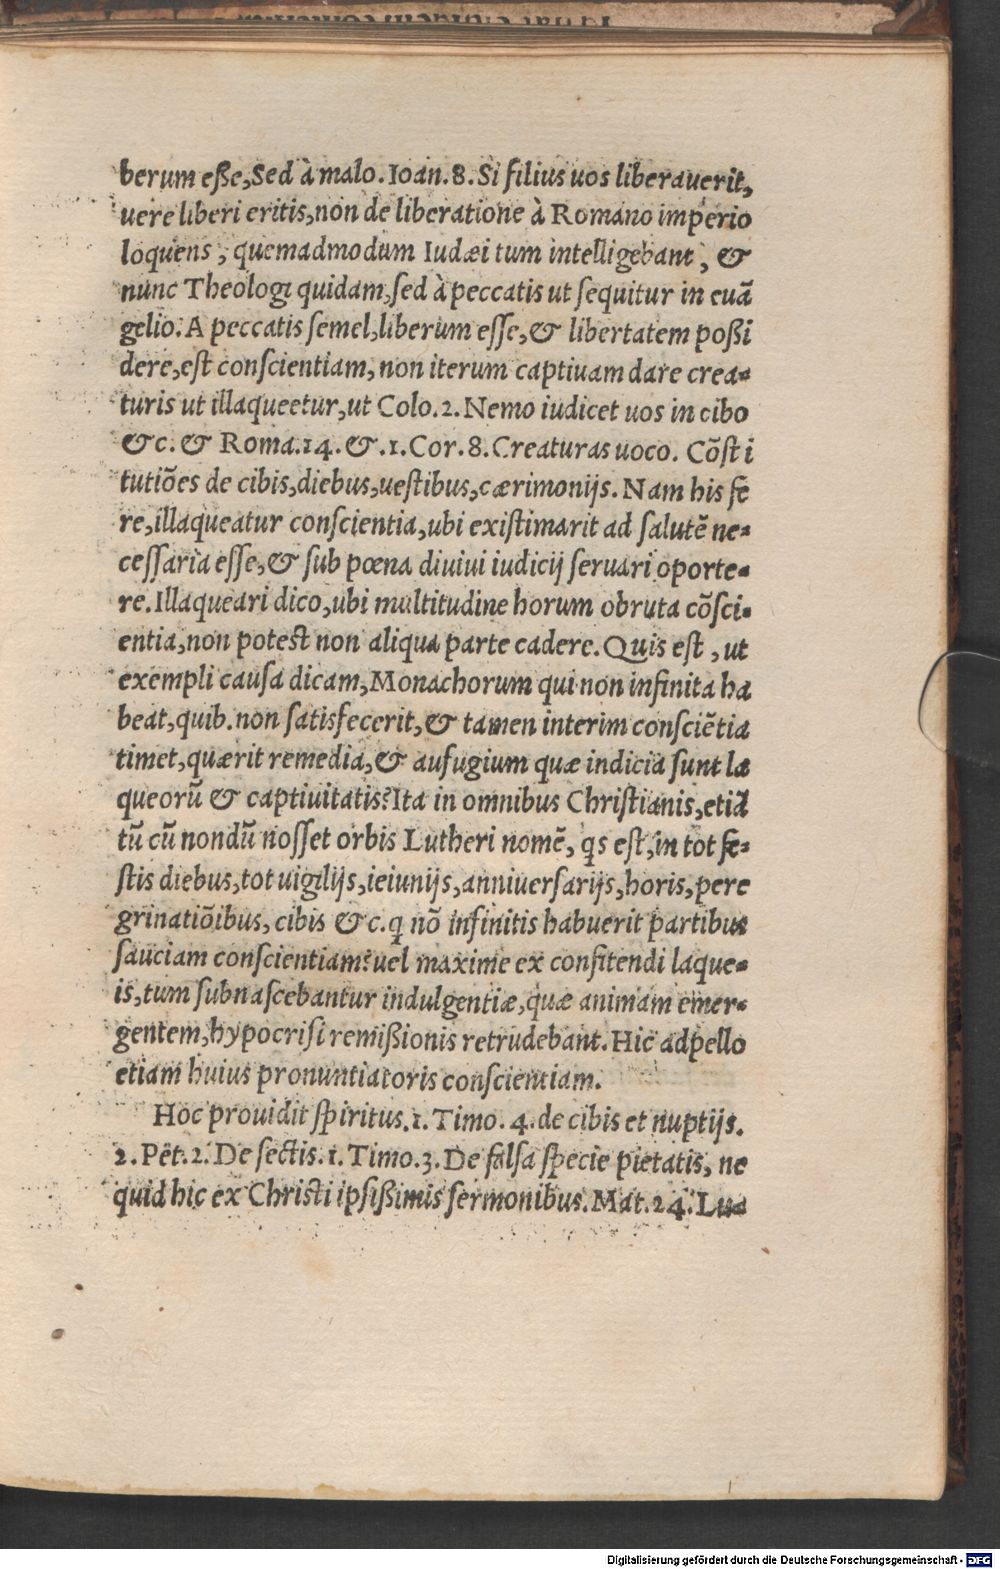 berum eße, Sed à malo. Ioan. 8. Si filius uos liberauerit,
uere liberi eritis, non de liberatione à Romano imperio
loquens, quemadmodum Iudæi tum intelligebant, &
nunc Theologi quidam, sed à peccatis ut sequitur in euã
gelio. A peccatis semel, liberum esse, & libertatem poßi
dere, est conscientiam, non iterum captiuam dare crea-
turis ut illaqueetur, ut Colo. 2. Nemo iudicet uos in cibo
&c. & Roma. 14. &. 1. Cor. 8. Creaturas uoco. Cõsti
tutiões de cibis, diebus, uestibus, cærimonijs. Nam his fe
re, illaqueatur conscientia, ubi existimarit ad salutẽ ne-
cessaria esse, & sub pœna diuiui iudicij seruari oporte-
re. Illaqueari dico, ubi multitudine horum obruta cõsci-
entia, non potest non aliqua parte cadere. Quis est, ut
exempli causa dicam, Monachorum qui non infinita ha
beat, quib. non satisfecerit, & tamen interim consciẽtia
timet, quærit remedia, & aufugium quæ indicia sunt la
queorũ & captiuitatis? Ita in omnibus Christianis, etiã
tũ cũ nondũ nosset orbis Lutheri nomẽ, qs est, in tot fe-
stis diebus, tot uigilijs, ieiunijs, anniuersarijs, horis, pere
grinatiõibus, cibis &c. q nõ infinitis habuerit partibus
sauciam conscientiam? uel maxime ex confitendi laque-
is, tum subnascebantur indulgentiæ, quæ animam emer-
gentem, hypocrisi remißionis retrudebant. Hic adpello
etiam huius pronuntiatoris conscientiam.
Hoc prouidit spiritus. 1. Timo. 4. de cibis et nuptijs.
2. Pet. 2. De sectis. 1. Timo. 3. De falsa specie pietatis, ne
quid hic ex Christi ipsißimis sermonibus. Mat. 24. Lu-
Digitalisierung gefördert durch die Deutsche Forschungsgemeinschaft - DFG